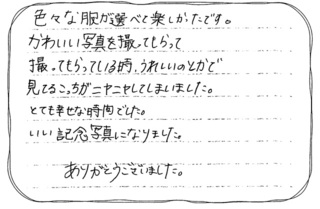 色々な服が選べて楽しかたです。
かわいい写真を撮ってもらって
撮ってもらっている時、うれしいのとかで
見てるこっちがニヤニヤしてしまいました。
とても幸せな時間でした。
いい記念写真になりました。
ありがとうございました。